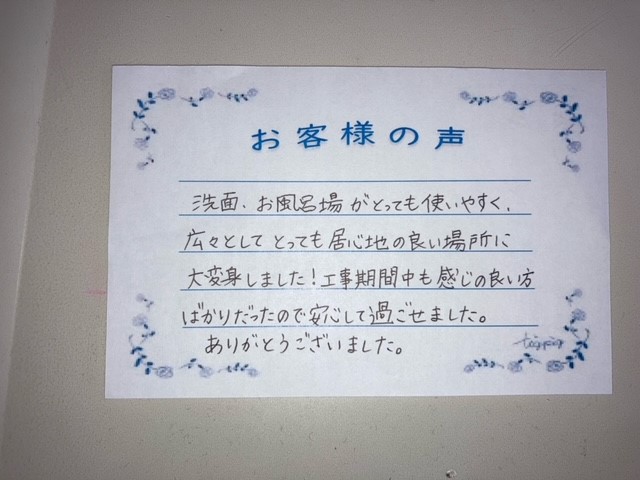 お客様の声
洗面、お風呂場がとっても使いやすく、
広々として とっても居心地の良い場所に
大変身しました！工事期間中も感じの良い方
ばかりだったので安心して過ごせました。
ありがとうございました。